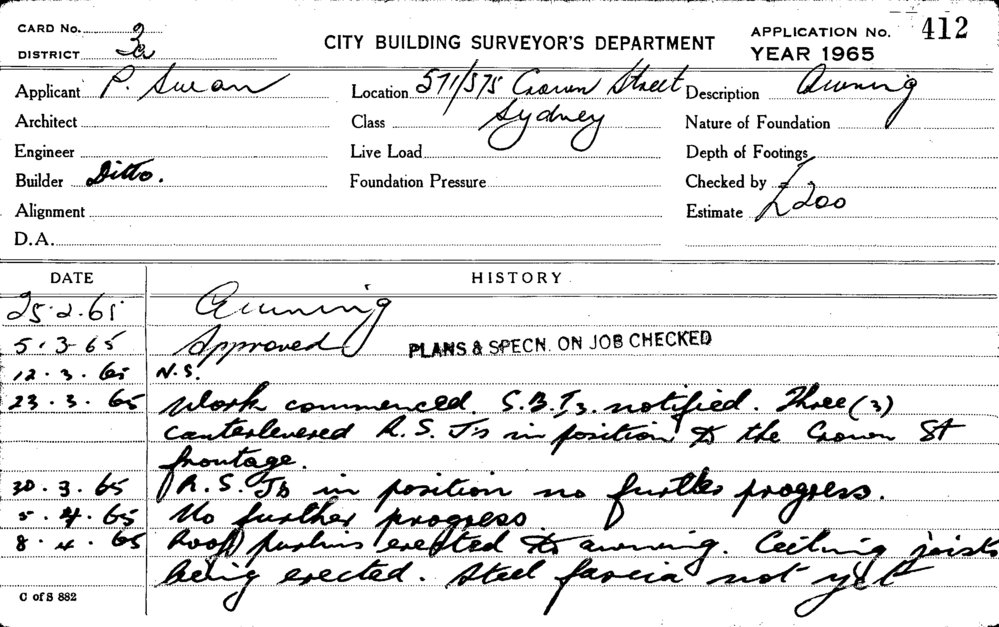 CARD No. 3
DISTRICT 2a
CITY BUILDING SURVEYOR'S DEPARTMENT
APPLICATION No. 412
YEAR 1965
Applicant P. Swan
Location 571/575 Crown Street
Description Awning
Architect
Class Sydney
Nature of Foundation
Engineer
Live Load
Depth of Footings
Builder Ditto.
Foundation Pressure
Checked by
Alignment
Estimate £200
D.A.
DATE HISTORY.
25.2.65 Awning
5.3.65 Approved PLANS & SPECN. ON JOB CHECKED
12.3.65 N.S.
23.3.65 Work commenced. S.B.I. notified. Three (3)
canterlevered R.S.J's in position to the Crown St
frontage.
30.3.65 R.S.Js in position no further progress.
5.4.65 No further progress
8.4.65 Roof purlins erected to awning. Ceiling joists
being erected. Steel farcia not yet
C of S 882